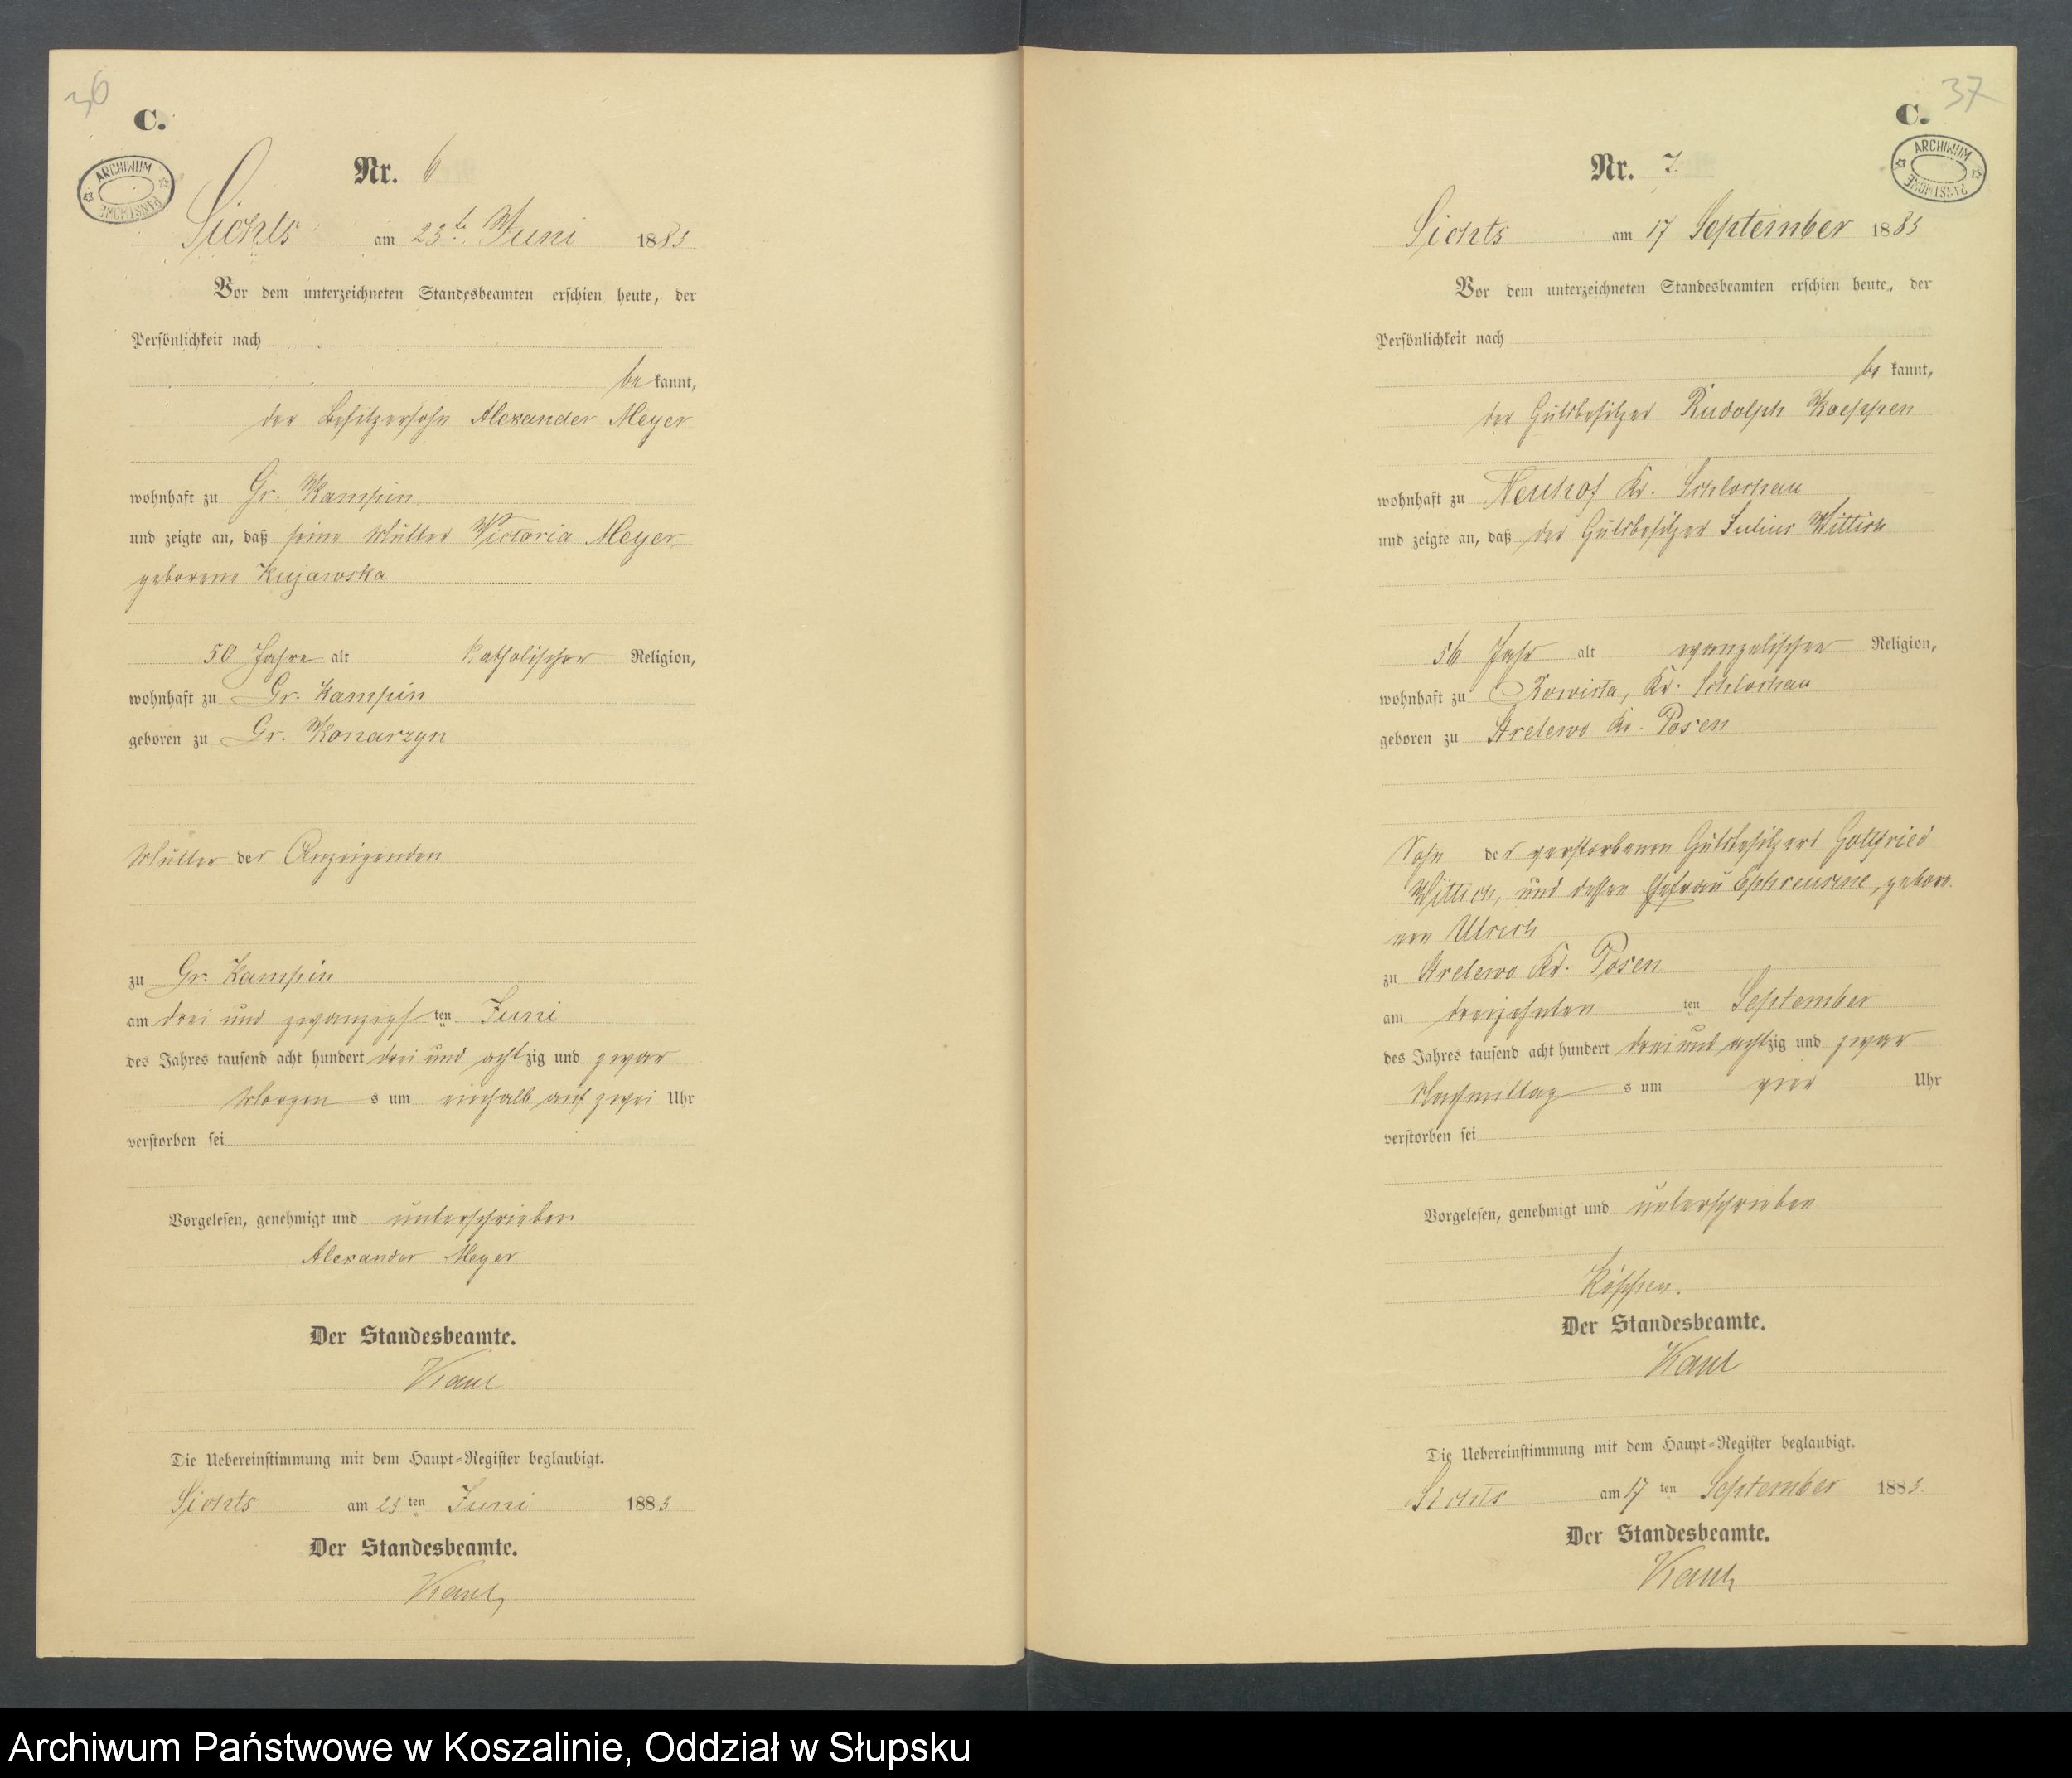 36
C.
ARCHIWUM PAŃSTWOWE
Nr. 6
Sichts am 23t. Juni 1883
Vor dem unterzeichneten Standesbeamten erschien heute, der
Persönlichkeit nach
be kannt,
der Besitzersohn Alexander Meyer
wohnhaft zu Gr. Kampin
und zeigte an, daß seine Mutter Victoria Meyer
geborene Kujawska
50 Jahre alt katholischer Religion,
wohnhaft zu Gr. Kampin
geboren zu Gr. Konarzyn
Mutter des Anzeigenden
zu Gr. Kampin
am drei und zwanzigst ten Juni
des Jahres tausend acht hundert drei und achtzig und zwar
Morgen s um einhalb auf zwei Uhr
verstorben sei
Vorgelesen, genehmigt und unterschrieben
Alexander Meyer
Der Standesbeamte.
Die Uebereinstimmung mit dem Haupt-Register beglaubigt.
Sichts am 23 ten Juni 1883
Der Standesbeamte.
37
C.
ARCHIWUM PAŃSTWOWE
Nr. 7.
Sichts am 17 September 1883
Vor dem unterzeichneten Standesbeamten erschien heute, der
Persönlichkeit nach
be kannt,
der Gutsbesitzer Rudolph Koeppen
wohnhaft zu Neuhof Kr. Schlochau
und zeigte an, daß der Gutsbesitzer Julius Wittich
56 Jahr alt evangelischer Religion,
wohnhaft zu Kr. Schlochau
geboren zu Strelewo Kr. Posen
Sohn des verstorbenen Gutsbesitzers Gottfried
Wittich, und dessen Ehefrau gebore
nen Ulrich
zu Strelewo Kr. Posen
am dreizehnten ten September
des Jahres tausend acht hundert drei und achtzig und zwar
Nachmittag s um vier Uhr
verstorben sei
Vorgelesen, genehmigt und unterschrieben
Köppen.
Der Standesbeamte.
Die Uebereinstimmung mit dem Haupt-Register beglaubigt.
Sichts am 17 ten September 1883.
Der Standesbeamte.
Archiwum Państwowe w Koszalinie, Oddział w Słupsku